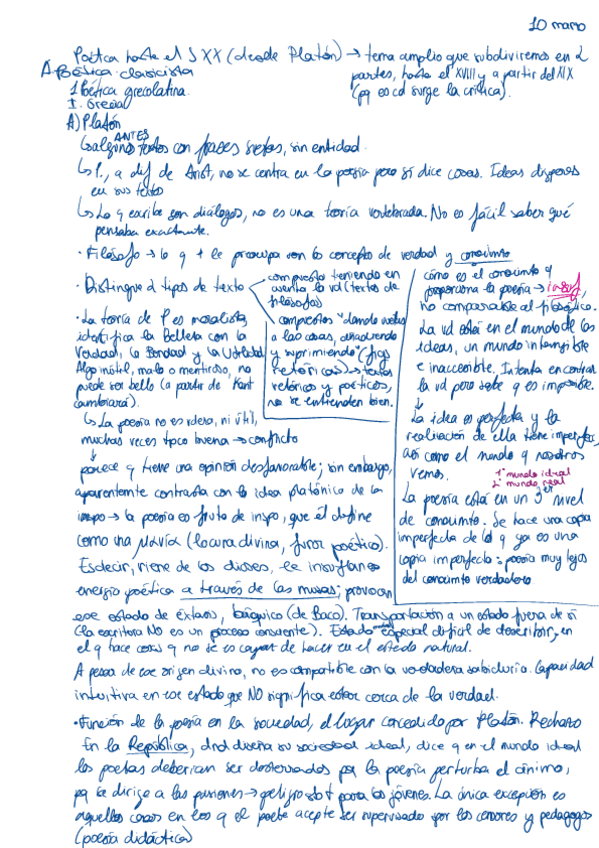 10 marzo
Poética hasta el S XX (desde Platón) → tema amplio que subdiviremos en 2
partes, hasta el XVIII y a partir del XIX
(pq es cd surge la crítica).
A. Poética clasicista
1. Poética grecolatina.
I. Grecia
A) Platón
ANTES
↳ algunos textos con frases sueltas, sin entidad.
↳ P., a dif de Arist, no se centra en la poesía pero sí dice cosas. Ideas dispersas
en sus textos
↳ Lo q escribe son diálogos, no es una teoría vertebrada. No es fácil saber qué
pensaba exactamente.
· Filósofo → lo q + le preocupa son los conceptos de verdad y conocimto
· Distingue 2 tipos de texto
compuesto teniendo en
cuenta la vd (textos de
filósofos)
compuestos "dando vueltas
a las cosas,
y suprimiendo" (figs
retóricas) → textos
retóricos y poéticos,
no se entienden bien.
· La teoría de P es moralista,
identifica la Belleza con la
Verdad, la Bondad y la Utilidad
Algo inútil, malo o mentiroso, no
puede ser bello (a partir de Kant
cambiará).
↳ La poesía no es vdera, ni útil,
muchas veces tpoco buena → conflicto
↓
parece q tiene una opinión desfavorable; sin embargo,
aparentemente contrasta con la idea platónica de la
inspo → la poesía es fruto de inspo, que él define
como una μανία (locura divina, furor poético).
Es decir, viene de los dioses, le insuflan esa
energía poética a través de las musas; provocan
cómo es el conocimto q
proporciona la poesía → insuf,
no comparable al filosófico.
La vd está en el mundo de las
ideas, un mundo intangible
e inaccesible. Intenta encontrar
la vd pero sabe q es imposible.
↓
La idea es perfecta y la
realización de ella tiene imperfec,
así como el mundo q nosotros
vemos.
1º mundo ideal
2º mundo real
La poesía está en un 3er nivel
de conocimto. Se hace una copia
imperfecta de lo q ya es una
copia imperfecta: poesía muy lejos
del conocimto verdadero
ese estado de éxtasis, báquico (de Baco). Transportación a un estado fuera de sí
(la escritora NO es un proceso consciente). Estado especial difícil de describir, en
el q hace cosas q no se es capaz de hacer en el estado natural.
A pesar de ese origen divino, no es compatible con la verdadera sabiduría. Capacidad
intuitiva en ese estado que NO significa estar cerca de la verdad.
· Función de la poesía en la sociedad, el lugar concedido por Platón. Rechazo
En la República, dnd diseña su sociedad ideal, dice q en el mundo ideal
los poetas deberían ser desterrados pq la poesía perturba el ánimo,
pq se dirige a las pasiones → peligro sb t para los jóvenes. La única excepción es
aquellos casos en los q el poeta acepte ser supervisado por los censores y pedagogos
(poesía didáctica)